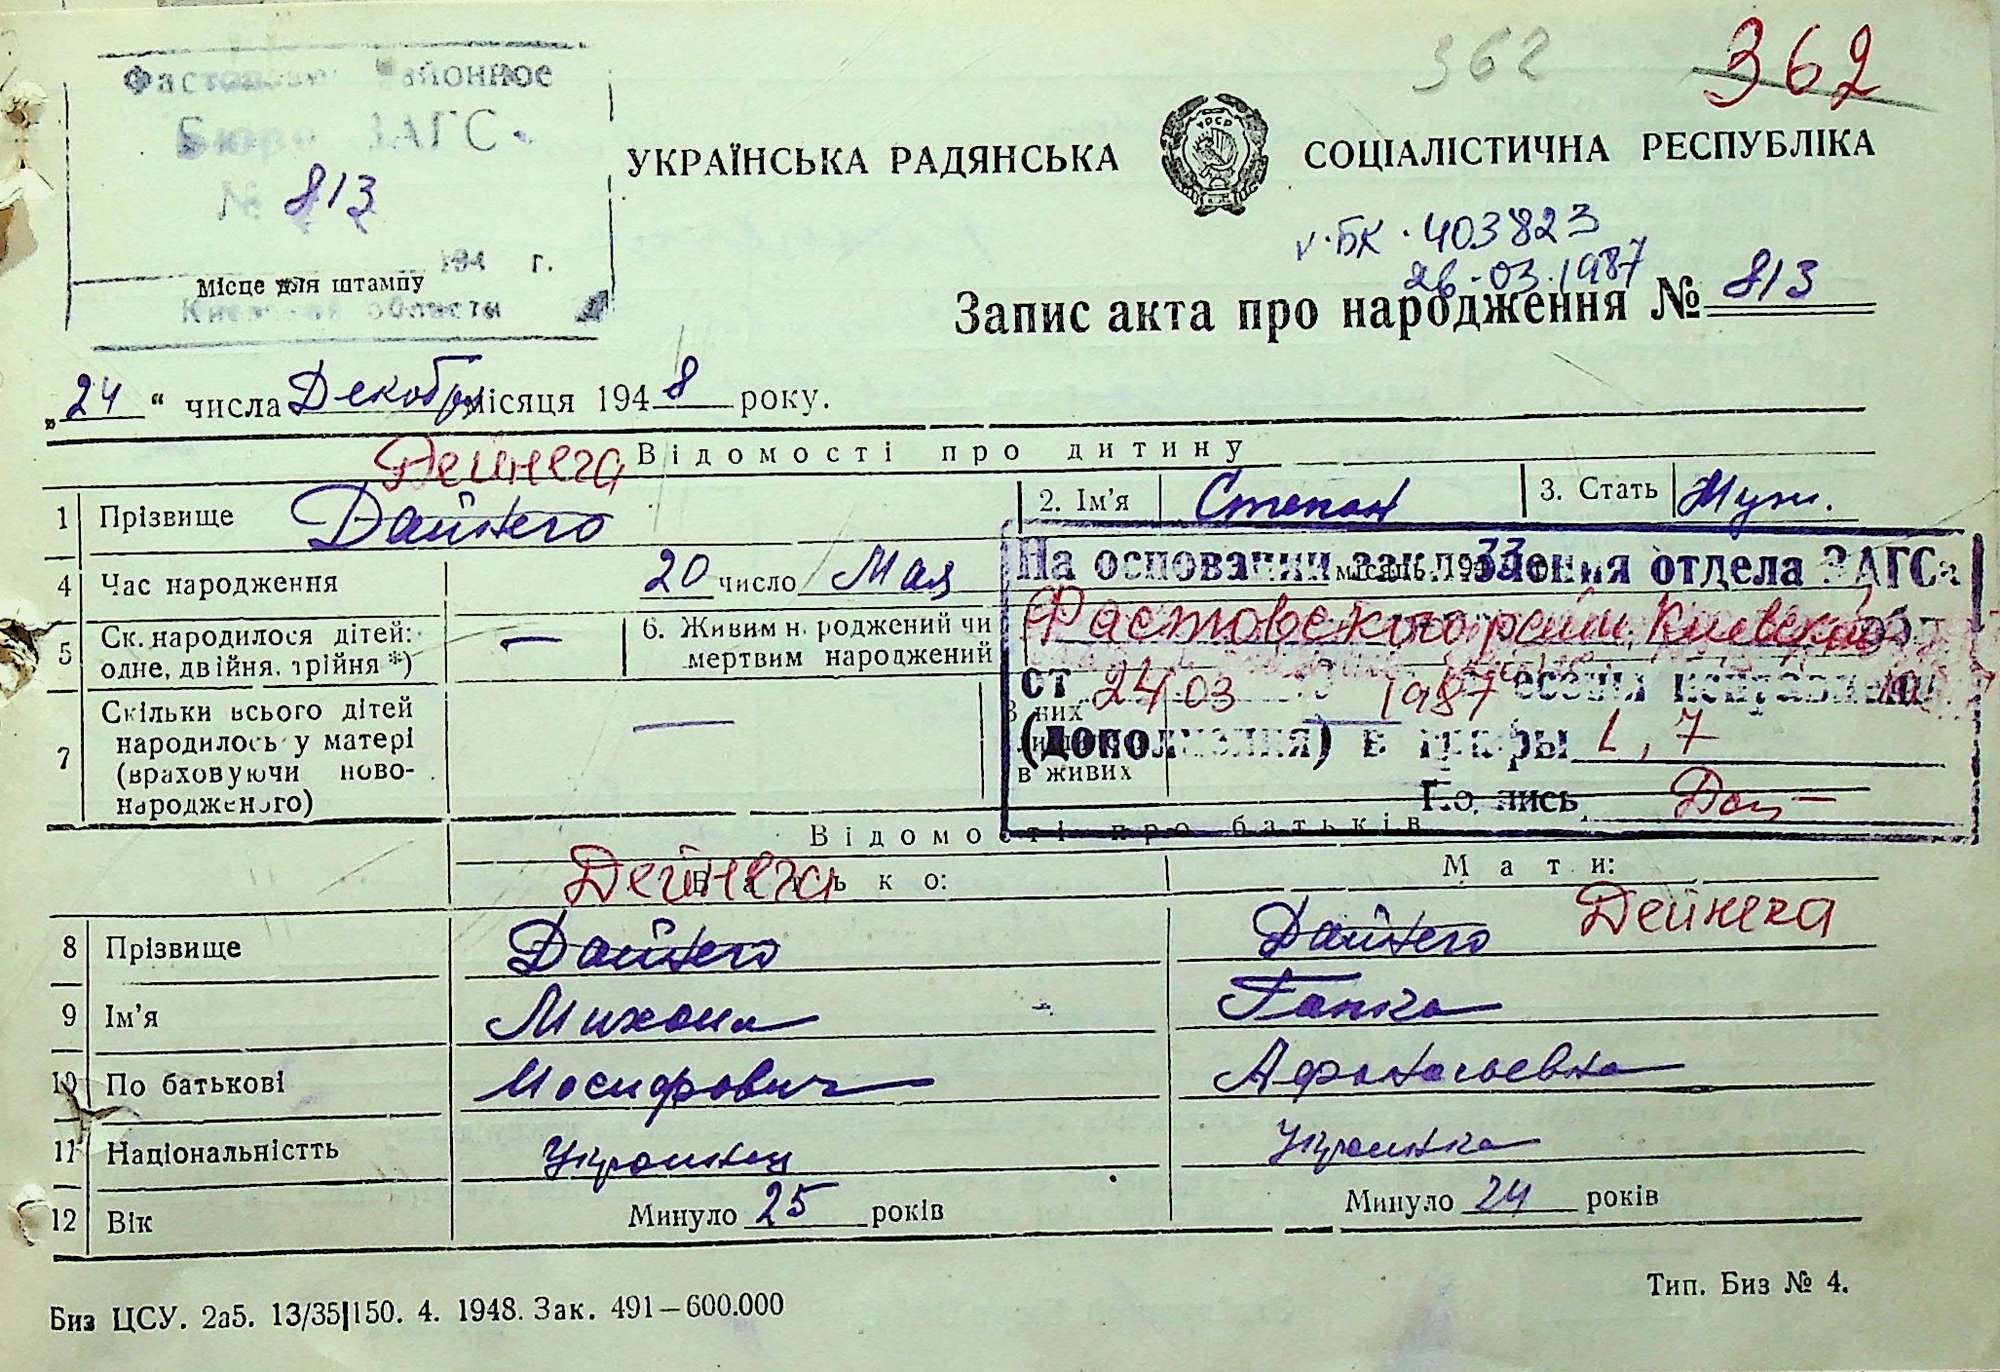 362 362
Фастовское Районное
Бюро ЗАГС
№ 813
194 г.
Місце для штампу
Киевской области
УКРАЇНСЬКА РАДЯНСЬКА СОЦІАЛІСТИЧНА РЕСПУБЛІКА
УРСР
V-БК 403823
26-03.1987
Запис акта про народження № 813
„24“ числа Декабр місяця 1948 року.
Дейнега Відомості про дитину
1 Прізвище Дайнего 2. Ім'я Степан 3. Стать Муж.
4 Час народження 20 число Мая місяць 1933
На основании заключения отдела ЗАГСа
Фастовского райи. Киевской обл
5 Ск. народилося дітей: одне, двійня, трійня *) — 6. Живим народжений чи мертвим народжений
от 24 03 1987 внесены исправления
(дополнения) в графы 1, 7
Подпись
7 Скільки всього дітей народилось у матері (враховуючи ново-народженого) — З них лишилось в живих
Відомості про батьків
Дейнега Батько: Мати:
8 Прізвище Дайнего Дайнего Дейнега
9 Ім'я Михаил Гапка
10 По батькові Иосифович Афанасьевна
11 Національністть Украинец Украинка
12 Вік Минуло 25 років Минуло 24 років
Биз ЦСУ. 2а5. 13/35|150. 4. 1948. Зак. 491—600.000
Тип. Биз № 4.